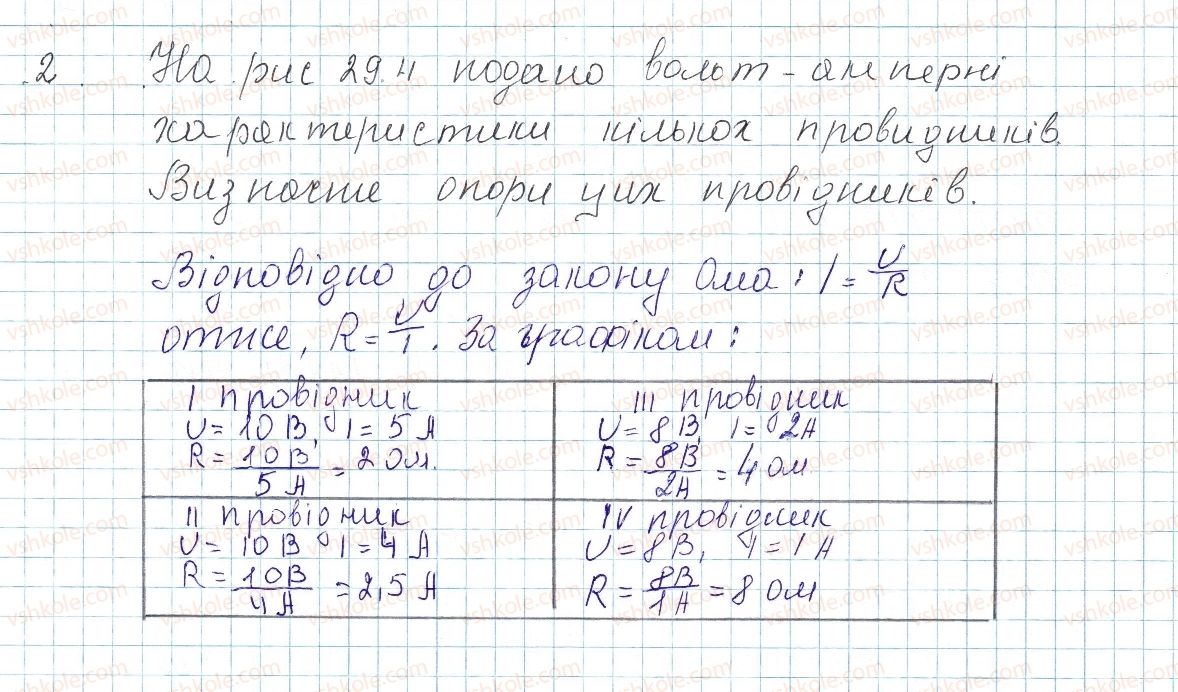 2 На рис 29.4 подано вольт-амперні
характеристики кількох провидників.
Визначте опори цих провідників.
Відповідно до закону Ома: I = U/R
отже, R = U/I. За графіком:
I провідник
U = 10 В, I = 5 А
R = 10 В/5 А = 2 Ом.
II провідник
U = 10 В I = 4 А
R = 10В/4 А = 2,5 А
III провідник
U = 8 В, I = 2А
R = 8В/2А = 4 Ом
IV провідник
U = 8 В, I = 1 А
R = 8В/1А = 8 Ом
vshkole.com